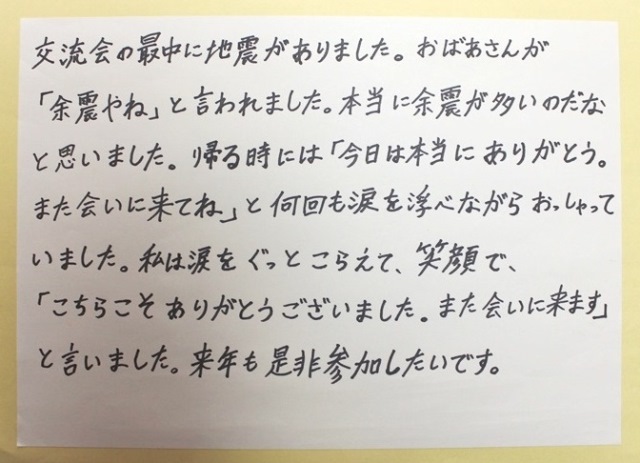 交流会の最中に地震がありました。おばあさんが
「余震やね」と言われました。本当に余震が多いのだな
と思いました。帰る時には「今日は本当にありがとう。
また会いに来てね」と何回も涙を浮べながらおっしゃって
いました。私は涙をぐっとこらえて、笑顔で、
「こちらこそありがとうございました。また会いに来ます」
と言いました。来年も是非参加したいです。